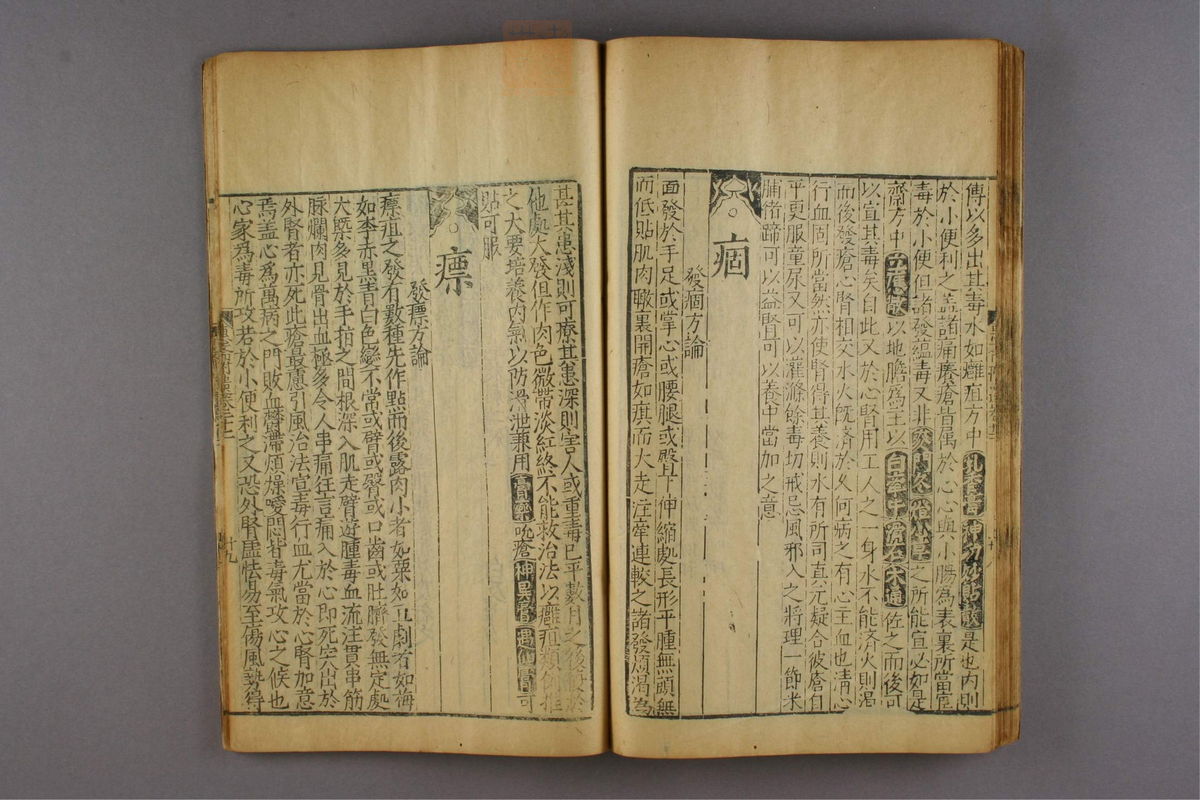 傅以多出其毒水如癰疽方中乳香膏神功妙貼散是也內則
於小便利之蓋諸痛癢瘡皆屬於心心與小腸為表裏所當宣
毒於小便但諸發蘊毒又非
齋方中以地膽為主以白牽牛滑石木通佐之而後可
以宣其毒矣自此又於心腎用工人之一身水不能濟火則渴
而後發瘡心腎相交水火既濟於久何病之有心主血也清心
行血固所當然亦使腎得其養則水有所司真元凝合彼瘡自
平更服童尿又可以灌滌餘毒切戒忌風邪入之將理一節米
脯猪蹄可以益腎可以養中當加之意
痼
發痼方論
面發於手足或掌心或腰腿或臀下伸縮處長形平腫無頭無
而低貼肌肉皺裏開瘡如旗而大走注牽連較之諸發煩渴為
甚其患淺則可療其患深則害人或重毒已平數月之後
他處大發但作肉色微帶淡紅終不能救治法以癰疽類例推
之大要培養內氣以防滑泄兼用膏藥吮瘡神異膏遇仙膏可
貼可服
瘭
發瘭方論
瘭疽之發有數種先作點而後露肉小者如粟如豆劇者如梅
如李赤黑青白色變不常或臂或臀或口齒或肚臍發無定處
大槩多見於手指之間根深入肌走臂遊腫毒血流注貫串筋
脉爛肉見骨出血極多令人串痛狂言痛入於心即死突出於
外腎者亦死此瘡最慮引風治法宣毒行血尤當於心腎加意
焉蓋心為萬病之門敗血鬱滯煩燥噯悶皆毒氣攻心之候也
心家為毒所攻者於小便利之又恐外腎虛怯易至傷風勢得
十九